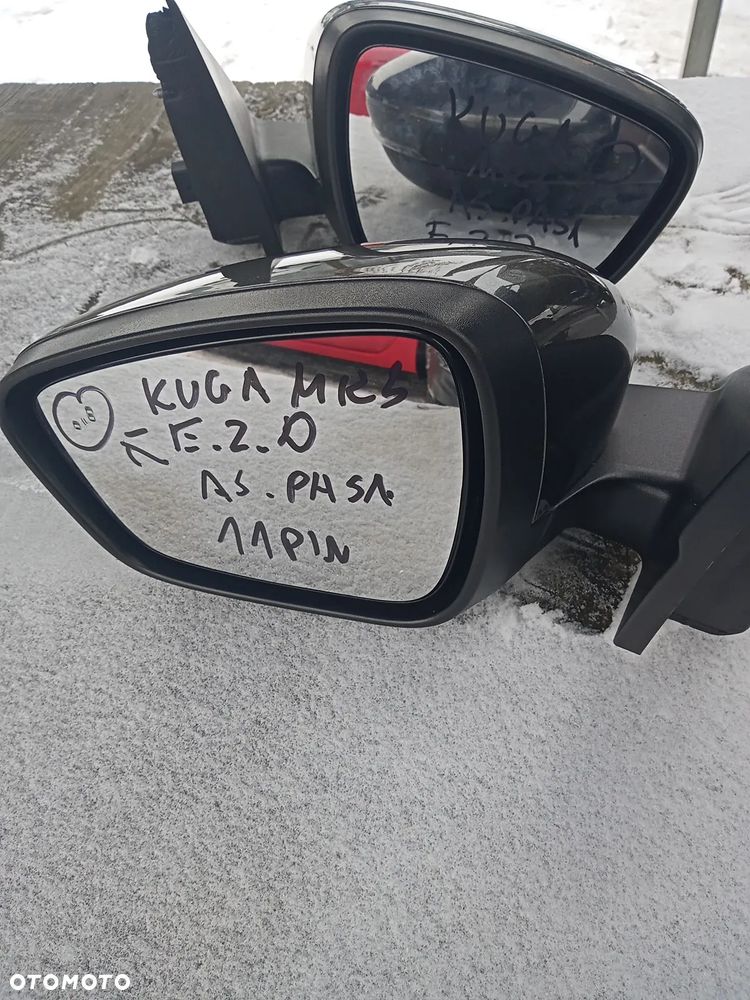 KUGA
AS.PASA
KUGA MK3
E.2.D
AS.PASA.
11PIN
OTOMOTO